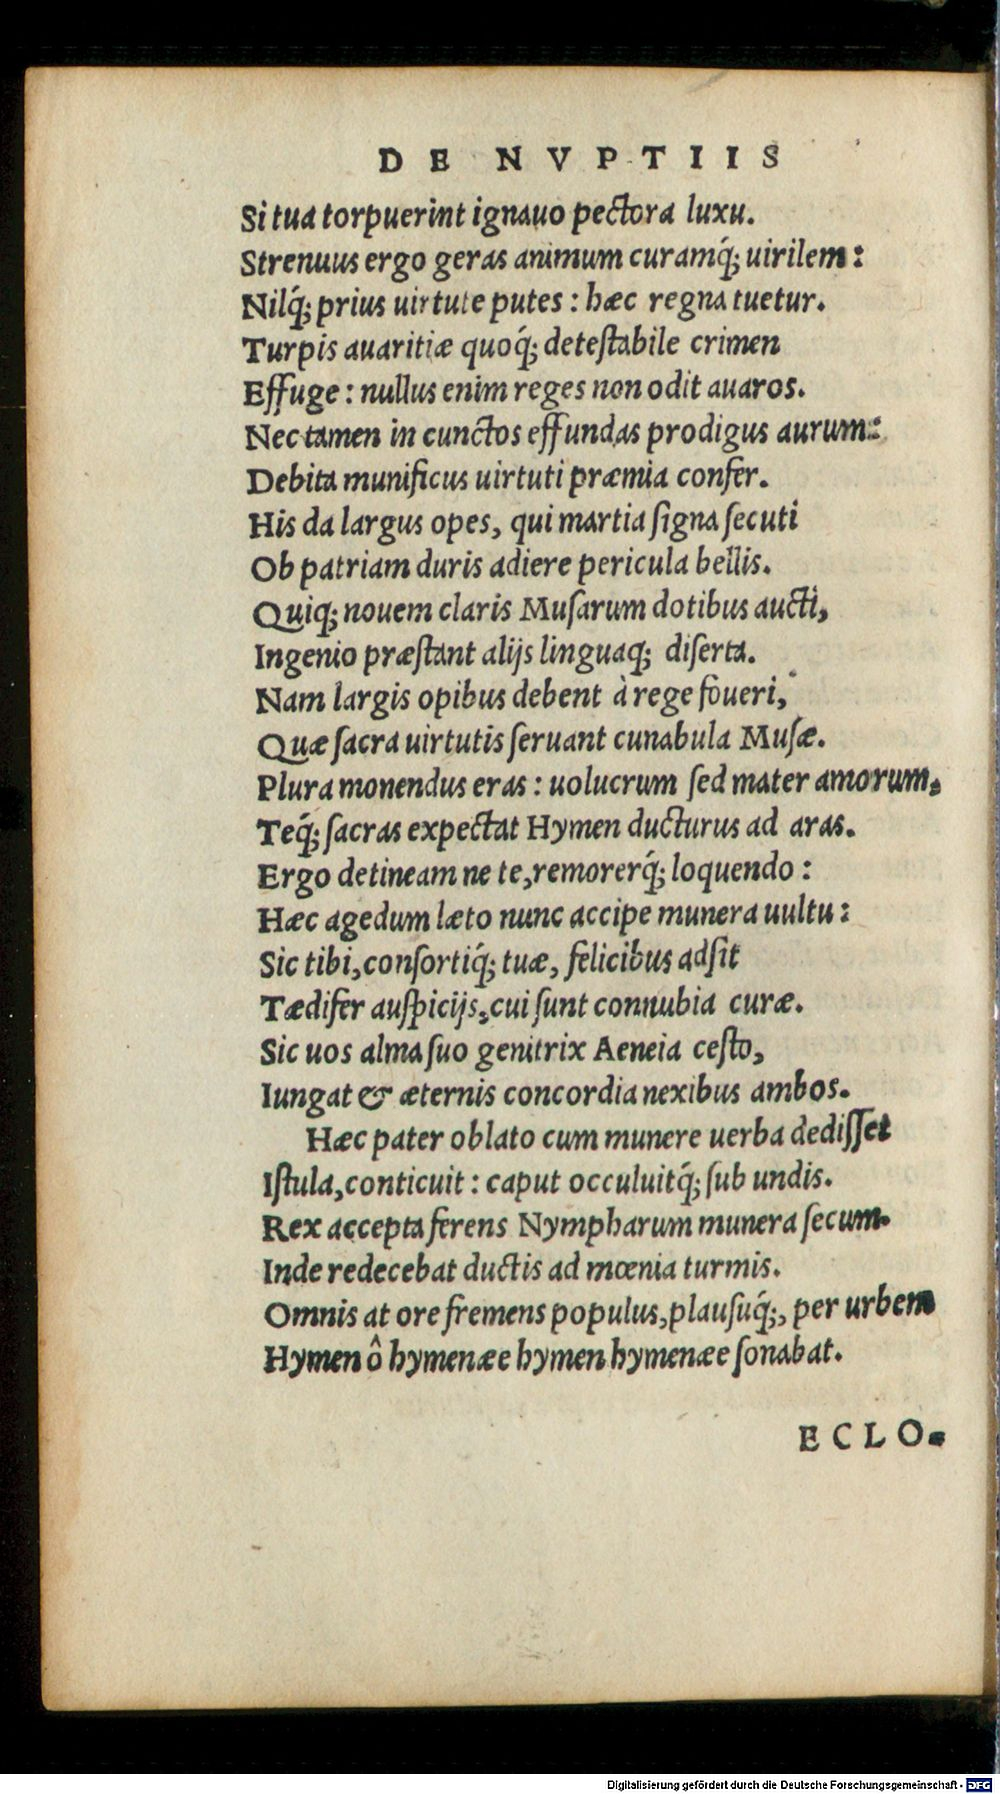 DE NVPTIIS
Si tua torpuerint ignauo pectora luxu.
Strenuus ergo geras animum curamq́; uirilem:
Nilq́; prius uirtute putes: hæc regna tuetur.
Turpis auaritiæ quoq́; deteſtabile crimen
Effuge: nullus enim reges non odit auaros.
Nec tamen in cunctos effundas prodigus aurum:
Debita munificus uirtuti præmia confer.
His da largus opes, qui martia ſigna ſecuti
Ob patriam duris adiere pericula bellis.
Quiq; nouem claris Muſarum dotibus aucti,
Ingenio præſtant alijs linguaq; diſerta.
Nam largis opibus debent à rege foueri,
Quæ ſacra uirtutis ſeruant cunabula Muſæ.
Plura monendus eras: uolucrum ſed mater amorum,
Teq́; ſacras expectat Hymen ducturus ad aras.
Ergo detineam ne te, remorerq́; loquendo:
Hæc agedum læto nunc accipe munera uultu:
Sic tibi, conſortiq́; tuæ, felicibus adſit
Tædifer auſpicijs, cui ſunt connubia curæ.
Sic uos alma ſuo genitrix Aeneia ceſto,
Iungat & æternis concordia nexibus ambos.
Hæc pater oblato cum munere uerba dediſſet
Iſtula, conticuit: caput occuluitq́; ſub undis.
Rex accepta ferens Nympharum munera ſecum.
Inde redecebat ductis ad mœnia turmis.
Omnis at ore fremens populus, plauſuq́;, per urbem
Hymen ô hymenæe hymen hymenæe ſonabat.
ECLO-
Digitalisierung gefördert durch die Deutsche Forschungsgemeinschaft - DFG